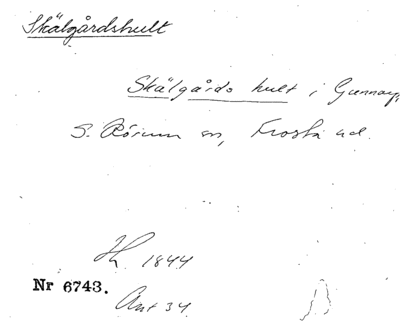 Skälgårdshult
Skälgårds hult i Gunnarp,
S. Rörum sn, Frosta hd.
Hk 1844
Nr 6743.
Ant 34